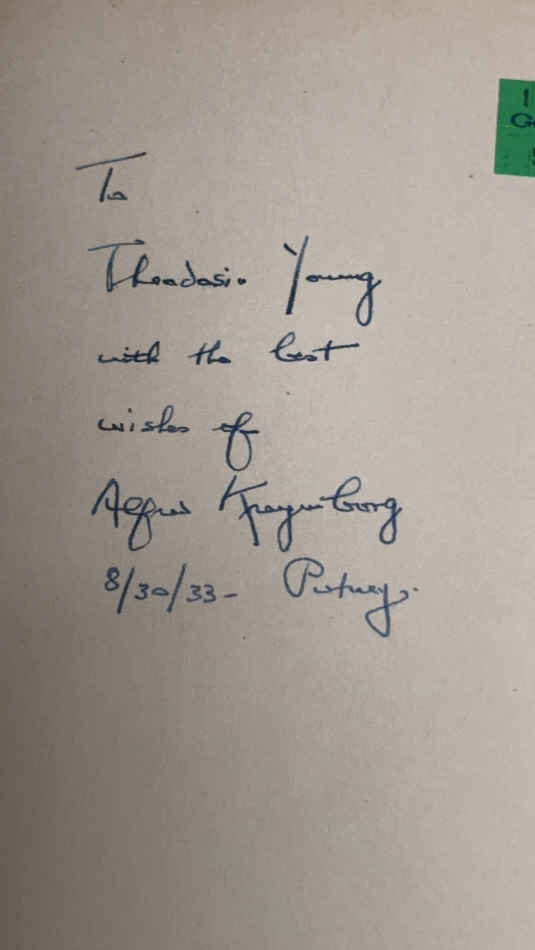 To
Theodosia Young
with the best
wishes of
Alfred Kreymborg
8/30/33- Putney.
1
G